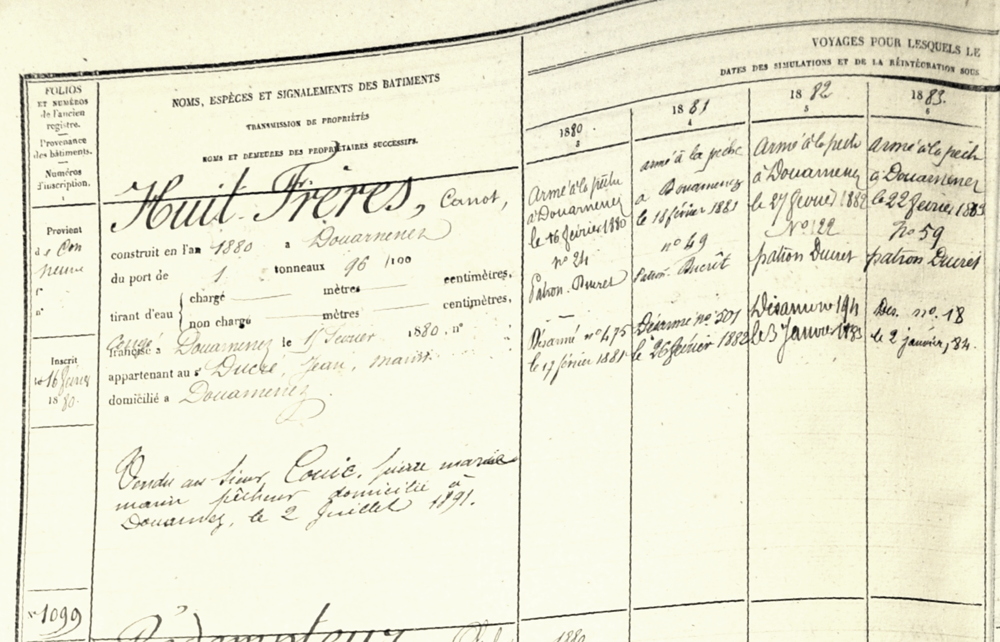 VOYAGES POUR LESQUELS LE
DATES DES SIMULATIONS ET DE LA RÉINTÉGRATION SOUS
FOLIOS
ET NUMÉROS
de l'ancien
registre.
Provenance
des bâtiments.
Numéros
d'inscription.
1
NOMS, ESPÈCES ET SIGNALEMENTS DES BATIMENTS
TRANSMISSION DE PROPRIÉTÉS
NOMS ET DEMEURES DES PROPRIÉTAIRES SUCCESSIFS.
Provient
de Con
neuve
f°
n°
Inscrit
le 16 février
1880.
Huit Frères, Canot,
construit en l'an 1880 à Douarnenez
du port de 1 tonneaux 96 /100
tirant d'eau
chargé mètres centimètres,
non chargé mètres centimètres,
francisé à Douarnenez le février 1880. n°
appartenant au s Ducré, Jean, marin
domicilié à Douarnenez
Vendu au sieur Couic, pierre marie
marin pêcheur domicilié à
Douarnez, le 2 Juillet 1891.
1880.
3
Armé à la pêche
à Douarnenez
le 16 février 1880
n° 24
Patron Ducret
Désarmé n° 475
le 17 février 1881
1881
4
armé à la pêche
à Douarnenez
le 18 février 1881
n° 49
Patron Ducrêt
Désarmé n° 501
le 26 février 1882
1882
5
Armé à la pêch
à Douarnenez
le 27 février 1882
N° 122
patron Ducret
Désarmé 194
le 3 Janvier 1883
1883.
6
armé à la pêch
à Douarnenez
le 22 février 1883
n° 59
patron Ducret
Des. n° 18
le 2 janvier, 84.
N° 1099
Rédempteur
1880